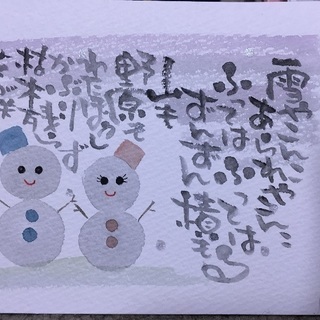 雪やこんこ
あられやこんこ
ふってはふっては
ずんずん積もる
山も
野原も
わたぼうし
かぶり
枯木残らず